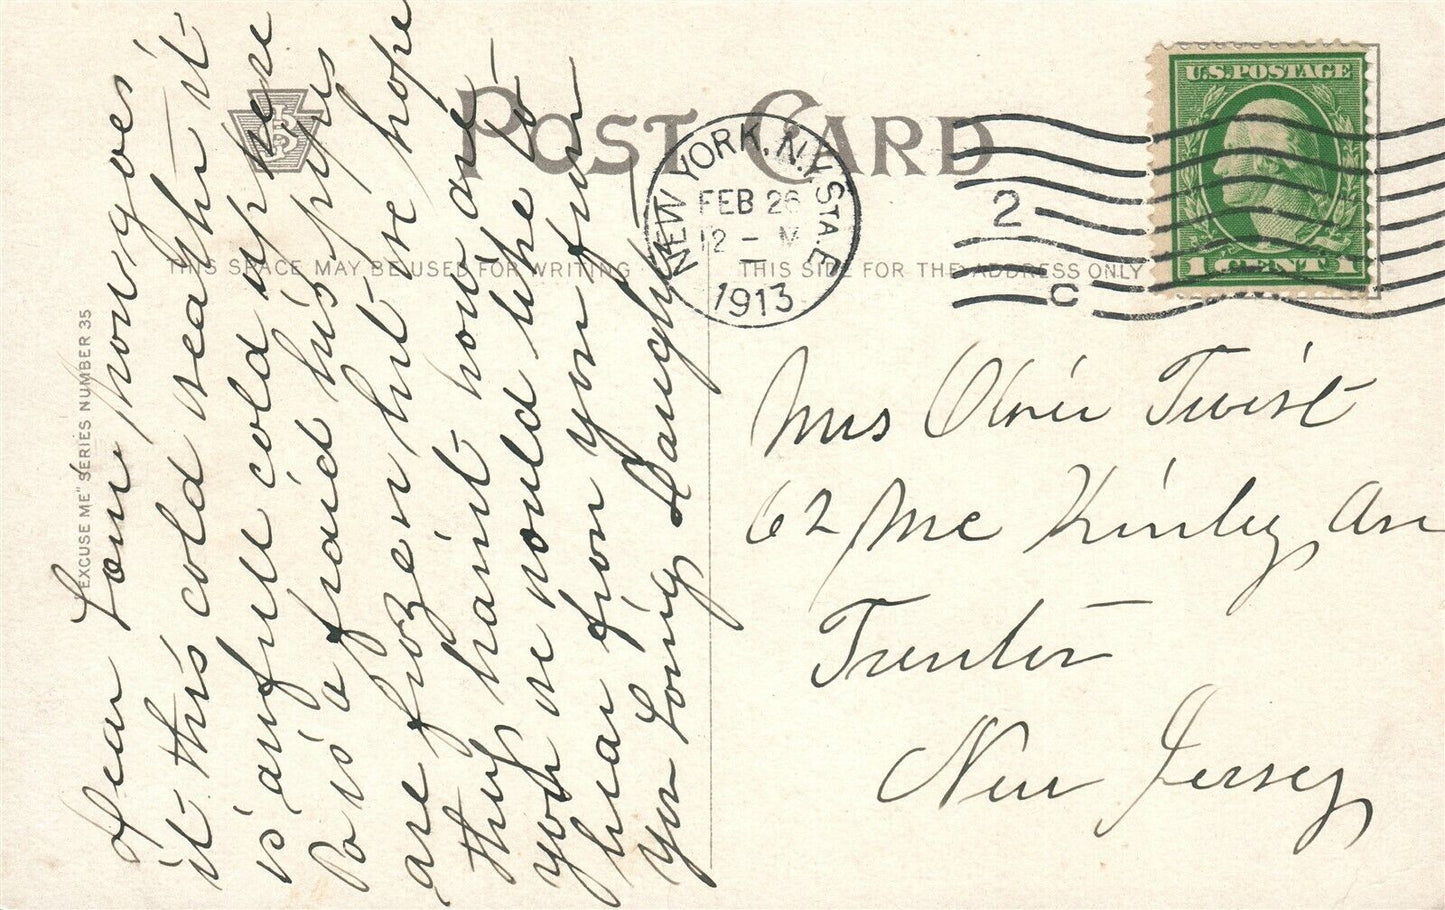 POST CARD
THIS SPACE MAY BE USED FOR WRITING
THIS SIDE FOR THE ADDRESS ONLY
"EXCUSE ME" SERIES NUMBER 35
NEW YORK, N.Y. STA. E
FEB 26
12 - M
1913
2
C
U.S. POSTAGE
1 CENT 1
Dear how goes
it this cold weather it
is awfull cold up here
Pa is afraid his pipes
are frozen but we hope
they haint how are
you we would like to
hear from you from
your Loving Daughter
Mrs Oliver Twist
62 Mc Kinley Ave
Trenton
New Jersey